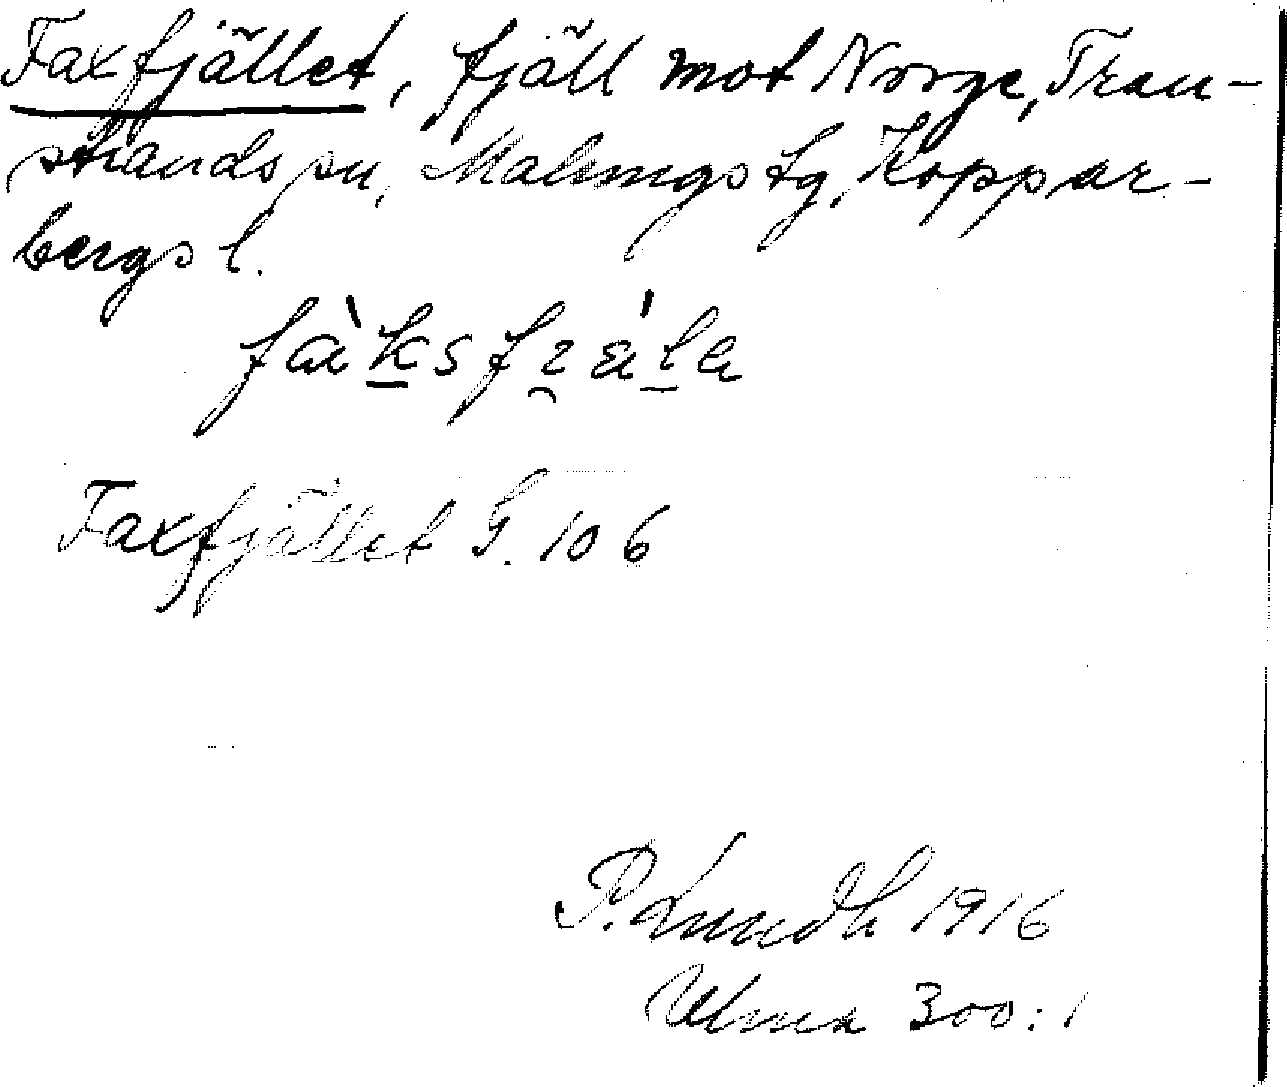 Faxfjället, fjäll mot Norge, Tran-
strands sn, Malungs tg, Koppar-
bergs l.
Faxfjället G. 106
P. Lundh 1916
Ulma 300:1